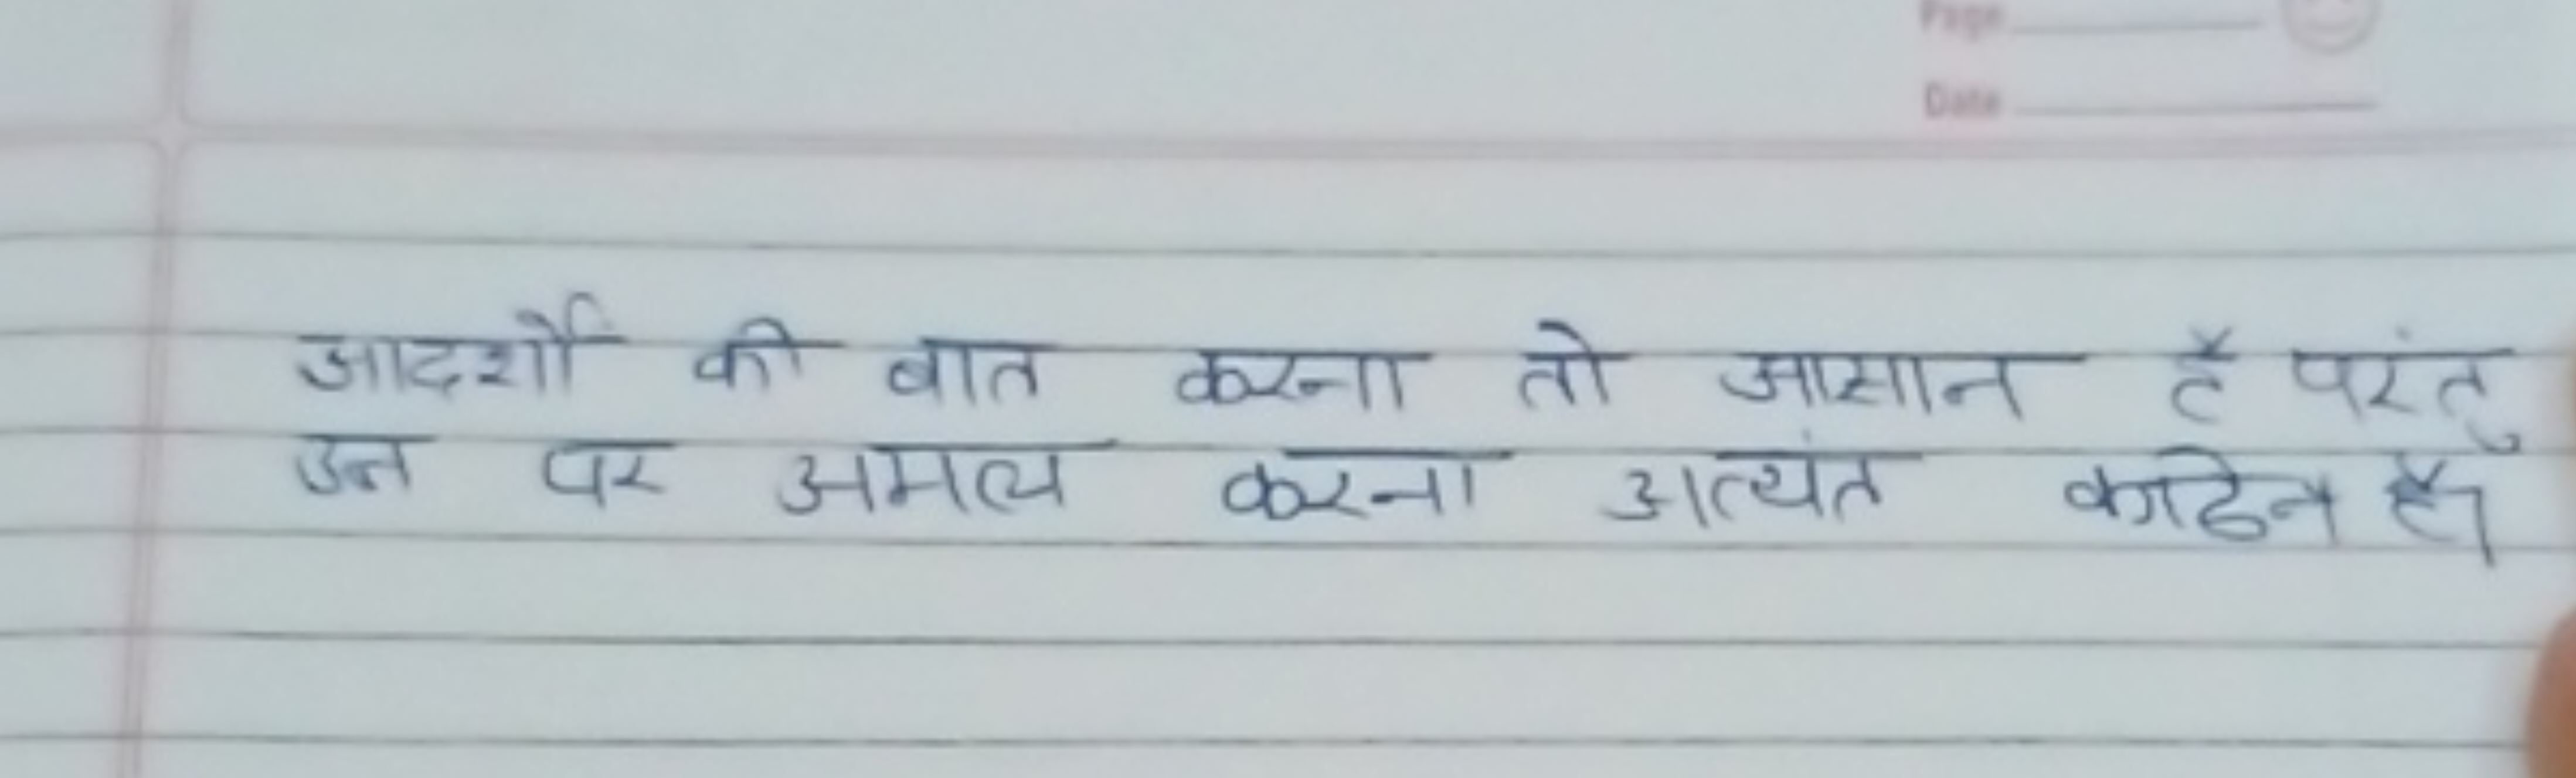 Page
Date
आदर्शों की बात करना तो आसान है परंतु
उन पर अमल करना अत्यंत कठिन है।